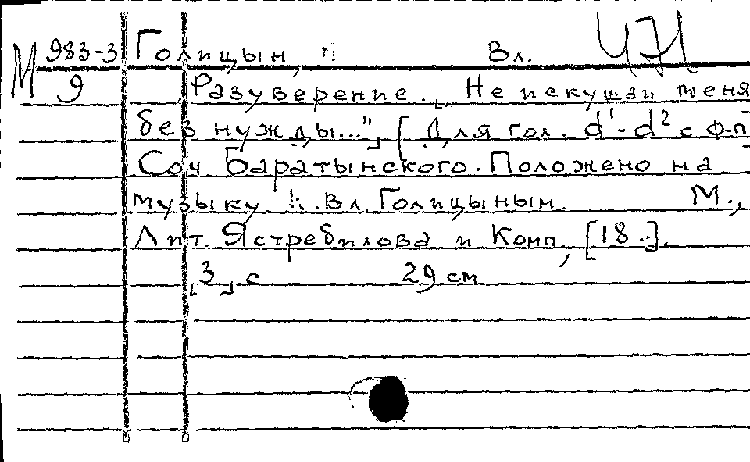 М 983-3 Голицын, Вл. ЧЗ
9 „Разуверение. Не искушай меня
без нужды..." [Для гол. d¹-d² с ф-п]
Соч Баратынского. Положено на
музыку К. Вл. Голицыным. М.,
Лит. Ястребилова и Комп, [18..].
[3] с 29 см